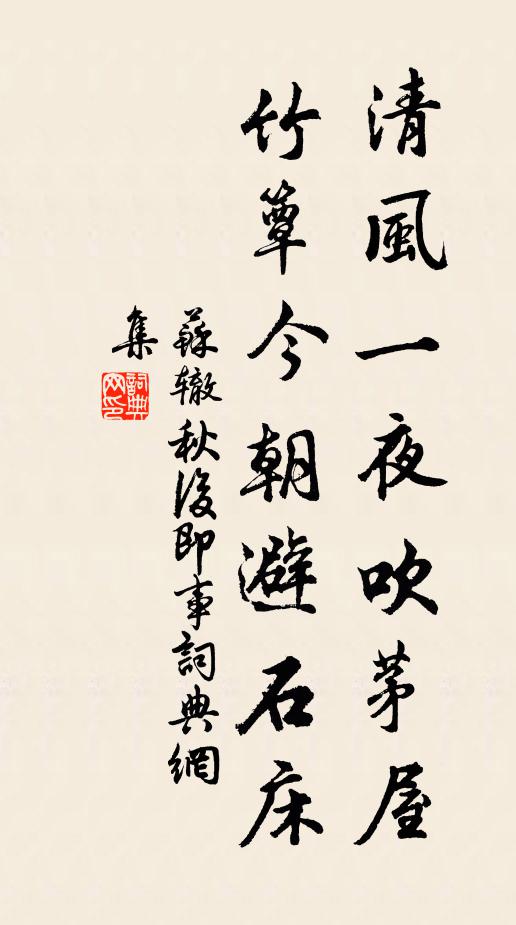 清風一夜吹茅屋
竹簟今朝避石床
蘇轍秋後即事詞典網
集
詞典
网印